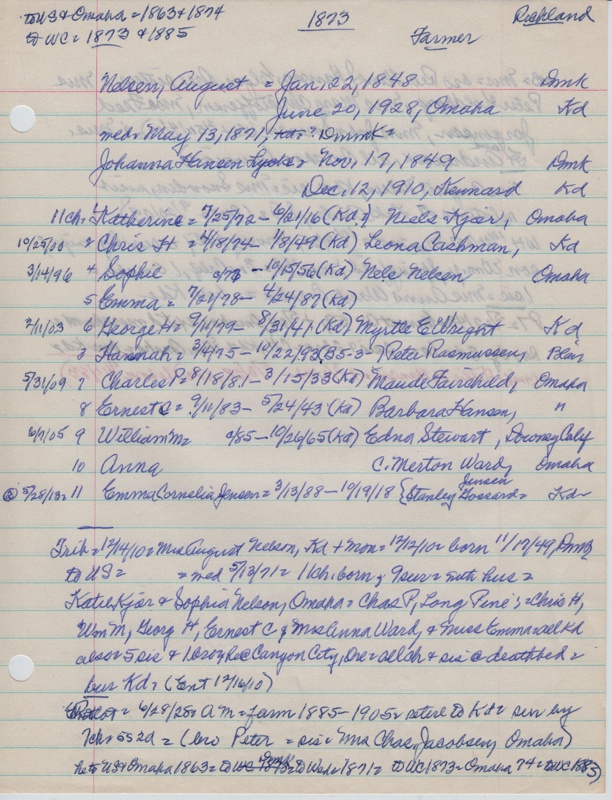 to US & Omaha = 1863 & 1874
1873
Richland
to WC = 1873 & 1885
Farmer
Nelsen, August = Jan, 22, 1848 Dmk
June 20, 1928, Omaha Kd
med = May 13, 1871,
Johanna Hansen = Nov, 17, 1849 Dmk
Dec, 12, 1910, Kennard Kd
11 ch = 1 Katherine = 7/25/72 - 6/21/16 (Kd?) Niels Kjar, Omaha
10/25/00 2 Chris H = 4/18/74 1/8/49 (Kd) Leona Cashman, Kd
3/14/96 4 Sophie c/76 - 10/15/56 (Kd) Nels Nelsen Omaha
5 Emma = 7/21/78 - 4/24/87 (Kd)
2/11/03 6 George H = 9/11/79 - 8/31/41 (Kd) Myrtle E Wright Kd
3 Hannah = 3/4/75 - 10/22/93 (B5-3-) Peter Rasmussen, Blair
5/31/09 7 Charles P = 8/18/81 - 3/15/33 (Kd) Maude Fairchild, Omaha
8 Ernest C = 9/11/83 - 5/24/43 (Kd) Barbara Hansen, "
6/7/05 9 William M = c/85 - 10/26/65 (Kd) Edna Stewart, Downey Calif
10 Anna C. Merton Ward, Omaha
Jensen
@ 5/28/13 = 11 Emma Cornelia Jensen = 3/13/88 - 10/19/18 {Stanley Gossard = Kd
Trib = 12/14/10 = Mrs August Nelson, Kd + Mon = 12/12/10 = born 11/17/49, Dmk
to US = = med 5/13/71 = 11 ch. born, 9 sur = with hus =
Kate Kjar & Sophia Nelson, Omaha = Chas P, Long Pine; = Chris H,
Wm M, Georg H, Ernest C & Mrs Anna Ward, & Miss Emma = all Kd
also = 5 sis & 1 bro, Canyon City, Ore = all ch & sis @ deathbed =
bur Kd = (Ent 12/16/10)
6/28/28 = A M = farm 1885 - 1905 = retire to Kd = sur by
7 ch = 5 s 2 d = (bro Peter = sis = Mrs Chas, Jacobsen, Omaha)
he to US & Omaha 1863 = to 1871 = to WC 1873 = Omaha 74 = to WC 1885)